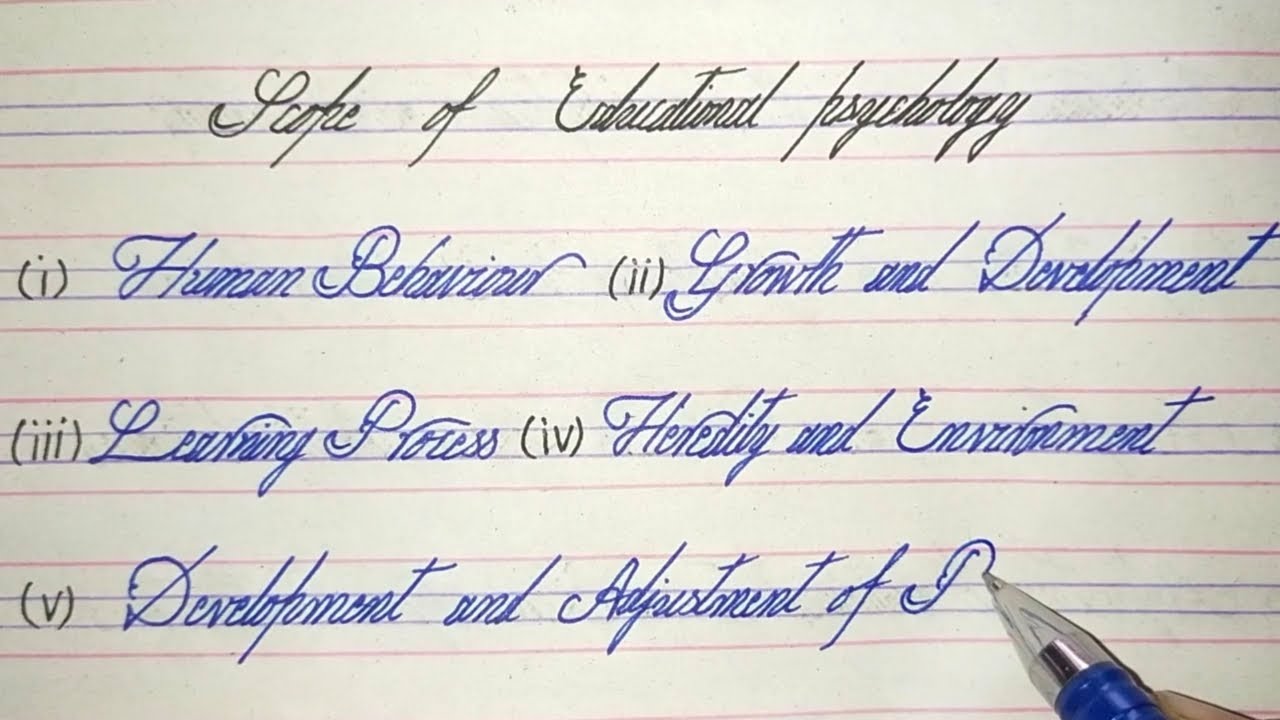 Scope of Educational psychology
(i) Human Behaviour (ii) Growth and Development
(iii) Learning Process (iv) Heredity and Environment
(v) Development and Adjustment of P